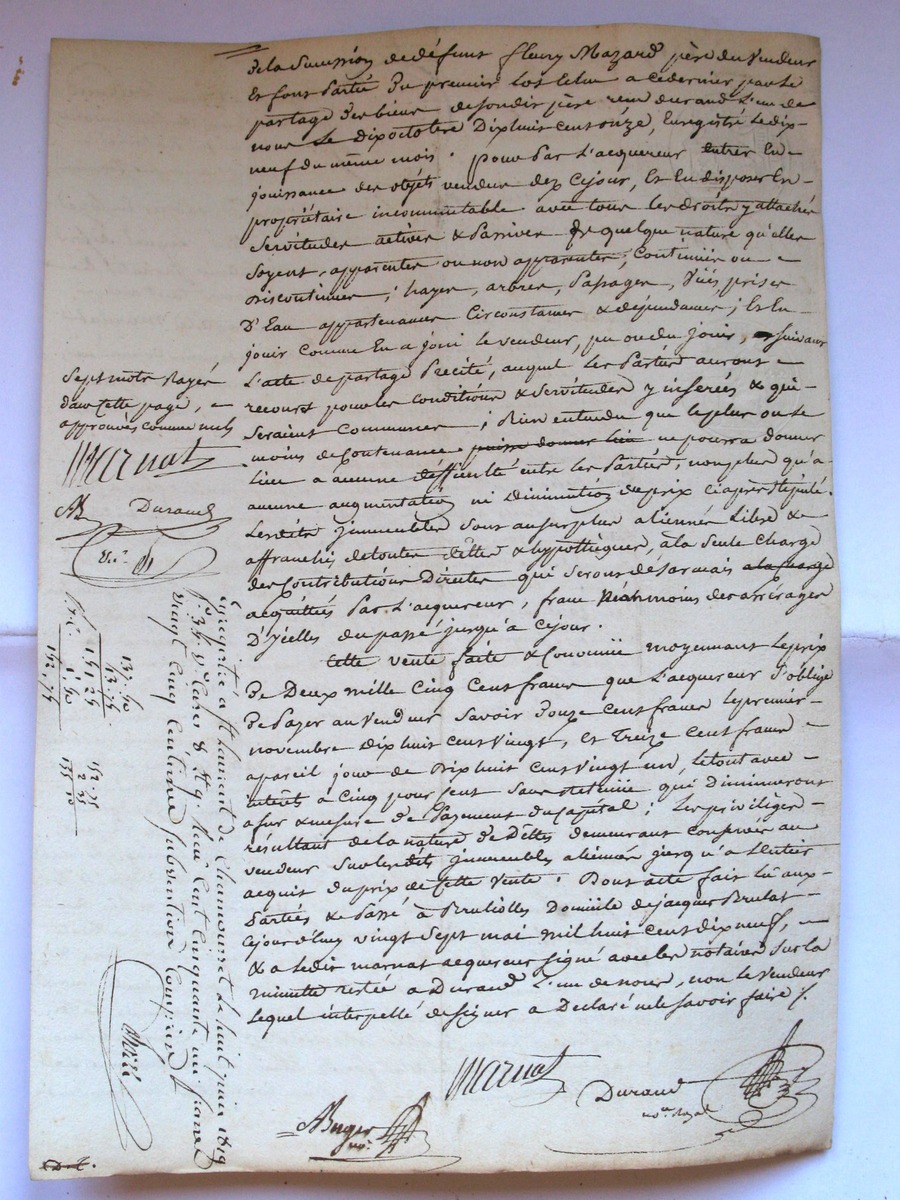 de la Succession de défunt fleury Mazard père du Vendeur
Et font Partie du premier lot Echu a ce dernier par le
partage des biens de sondit père reçu durand L'un de
nous Le dix octobre Dix huit cent onze, Enregistré Le dix
neuf du même mois. pour Par L'acquereur entrer En
jouissance des objets vendus dez Cejour, Et En disposer En
propriétaire incommutable avec tous les droits y attachés
Servitudes actives & Passives de quelque nature qu'elles
Soyent, apparentes ou non apparentes, Continües ou
Discontinues ; hayes, arbres, Passages, Vües, prises
D'Eau appartenances Circonstances & dépendances ; Et En
jouir comme En a joui le vendeur, pu ou du jouir, suivant
L'acte de partage Précité, auquel les Parties auront
recours pour les conditions & Servitudes y inserées & qui
Seraient Communes ; Bien entendu que le plus ou le
moins de Contenance puisse donner lieu ne pourra donner
lieu a aucune difficulté entre les Parties, non plus qu'a
aucune augmentation ni diminution du prix ci après stipulé.
Lesdits immeubles Sont au surplus aliennés Libres &
affranchis de toutes dettes & hypothèques, à la Seule Charge
des Contributions Directes qui Seront desormais a la charge
acquittées Par L'acquereur, franc Néahmoins des arrérages
D'ycelles du passé jusqu'à Cejour.
Cette vente faite & Convenüe moyennant Le prix
De Deux mille Cinq Cent francs que L'acquereur S'oblige
De Payer au Vendeur Savoir Douze Cent francs le premier
novembre dix huit cent Vingt, Et Treize Cent francs
a pareil jour de Dix huit Cent Vingt un, le tout avec
intérêts à Cinq pour Cent Sans retenue qui diminueront
a fur & mesure de Payement du Capital ; Les privilèges
résultant de la nature de Dettes demeurant Conservés au
vendeur Sur lesdits immeubles aliennés jusqu'à L'entier
acquit du prix de Cette Vente. Dont acte fait lu aux
Parties & Passé à Brullolles Domicile de jacques
Cejourd'huy vingt Sept mai mil huit cent dix neuf,
& a ledit marnat acquereur Signé avec les notaires Sur la
minutte restée a Durand L'un de nous, non le Vendeur
Lequel interpellé de Signer a Declaré ne le Savoir faire /.
Marnat
Durand
no.re Royal
Auger
no.re
Sept mots Rayés
dans Cette page,
approuvés comme nuls
Marnat
Durand
Enregistré a St Laurent de Chamousset Le huit juin 1819
Reçu Cent Cinquante un francs
Vingt Cinq Centimes Subvention Comprise
137. 50
13. 75
151. 25
1. 50
152. 75
152. 75
2. 35
155. 10